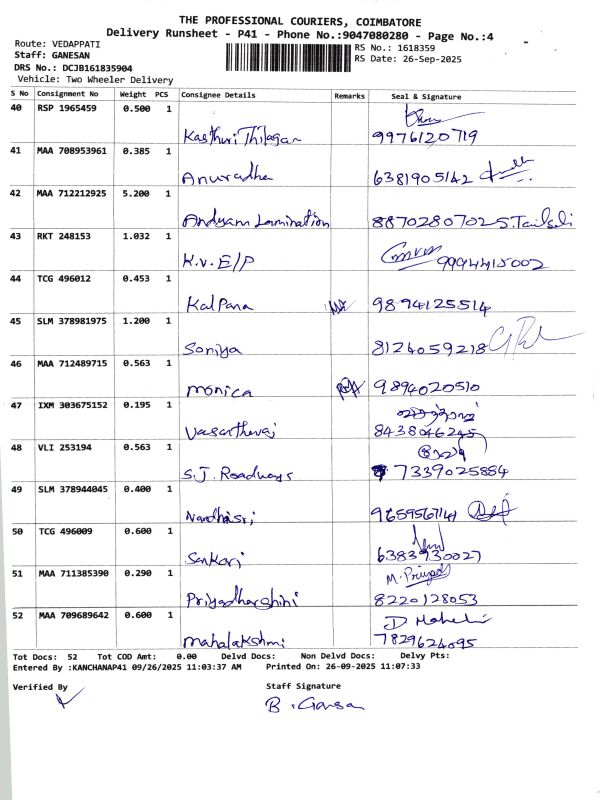 THE PROFESSIONAL COURIERS, COIMBATORE
Delivery Runsheet - P41 - Phone No.:9047080280 - Page No.:4
Route: VEDAPPATI RS No.: 1618359
Staff: GANESAN RS Date: 26-Sep-2025
DRS No.: DCJB161835904
Vehicle: Two Wheeler Delivery
S No Consignment No Weight PCS Consignee Details Remarks Seal & Signature
40 RSP 1965459 0.500 1
Kasthuri Thilagar 9976120719
41 MAA 708953961 0.385 1
Anuradha 6381905142
42 MAA 712212925 5.200 1
Andyam Lamination 8870280702
43 RKT 248153 1.032 1
K.V. E/P 9994415002
44 TCG 496012 0.453 1
Kalpana 9894125514
45 SLM 378981975 1.200 1
Soniya 8124059218
46 MAA 712489715 0.563 1
monica 9894020510
47 IXM 303675152 0.195 1
Vasanthavaj 8438046245
48 VLI 253194 0.563 1
S.J. Roadways 7339025884
49 SLM 378944045 0.400 1
Nandhasri
50 TCG 496009 0.600 1
Sankari 6383930027
51 MAA 711385390 0.290 1
M. Priyad
Priyadharshini 8220128053
52 MAA 709689642 0.600 1
D Mahali
mahalakshmi 7829624095
Tot Docs: 52 Tot COD Amt: 0.00 Delvd Docs: Non Delvd Docs: Delvy Pts:
Entered By :KANCHANAP41 09/26/2025 11:03:37 AM Printed On: 26-09-2025 11:07:33
Verified By Staff Signature
B. Gansa